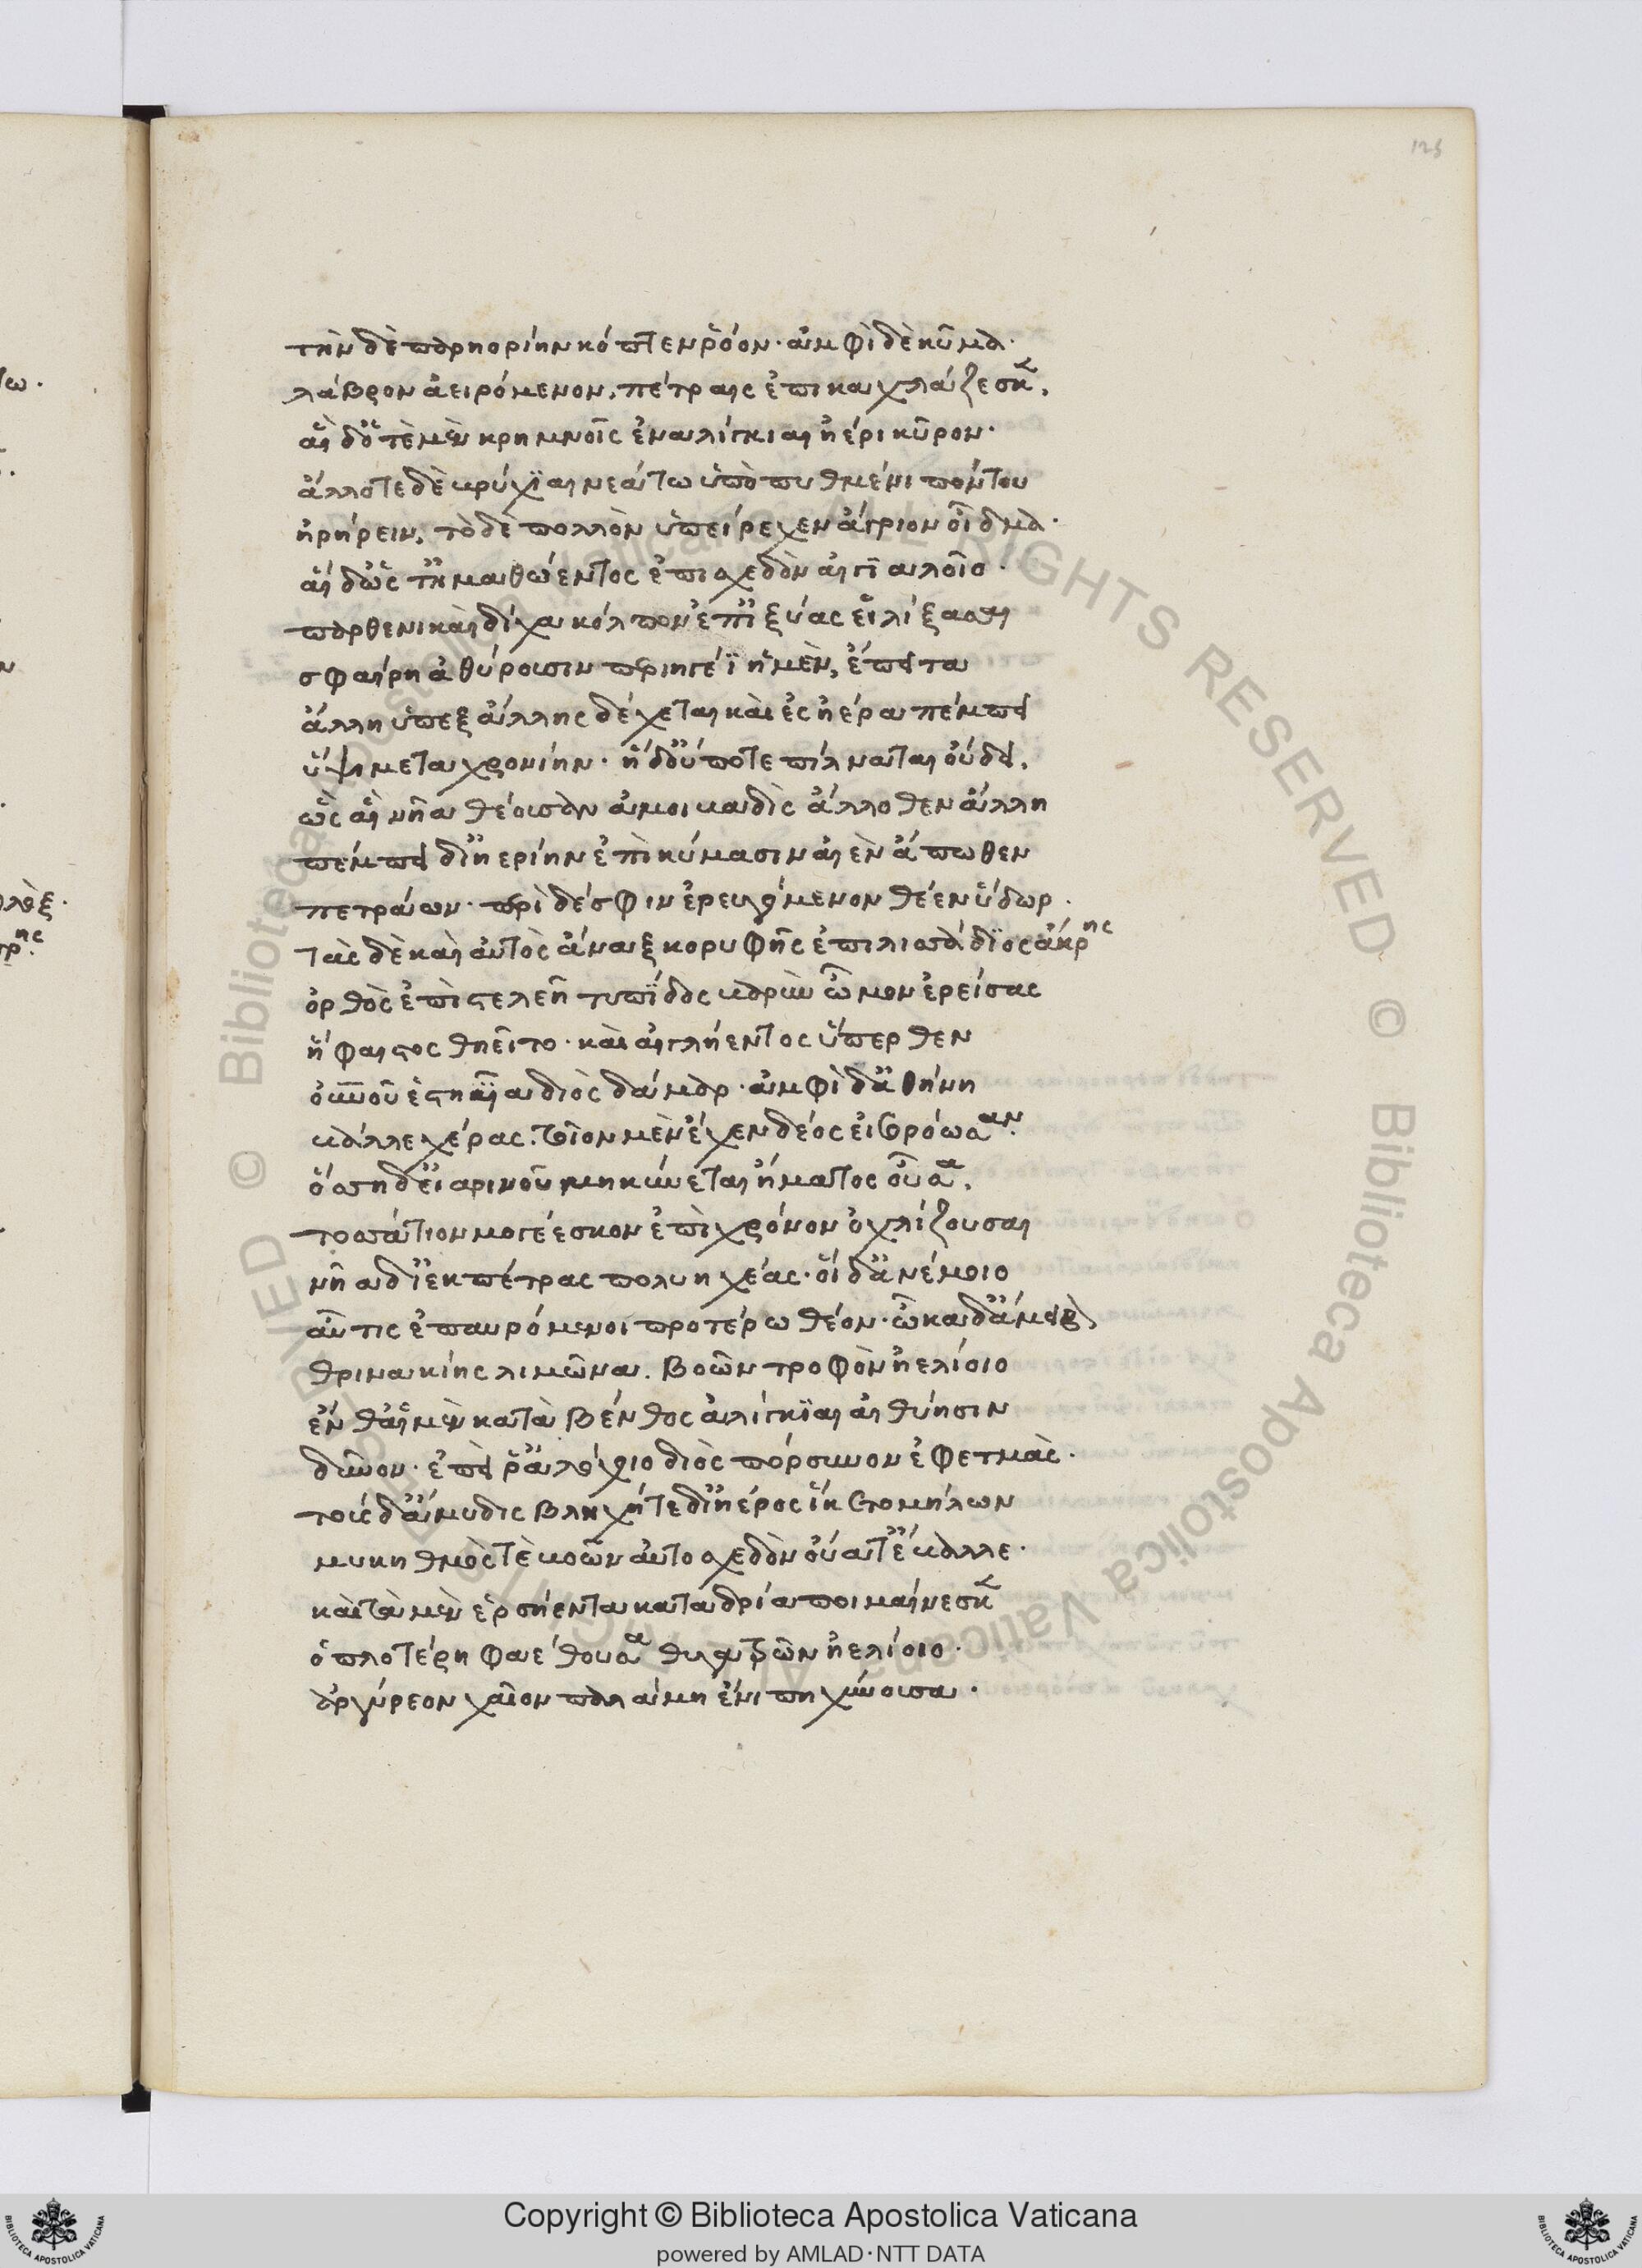 125
τὴν δὲ παρηορίην κόπτεν ῥόον· ἀμφὶ δὲ κῦμα·
λάβρον ἀειρόμενον, πέτραις ἐπικαχλάζεσκεν,
αἵ δ' ὁτὲ μὲν κρημνοῖς ἐναλίγκιαι ἠέρι κῦρον·
ἄλλοτε δὲ βρύχιαι νεάτω ὑπὸ πυθμένι πόντου
ἠρήρειν, τὸ δὲ πολλὸν ὑπείρεχεν ἄγριον οἶδμα·
αἵ δ' ὥς τ' ἠμαθόεντος ἐπισχεδὸν αἰγιαλοῖσ·
παρθενικαὶ δίχα κόλπον ἐπ' ἰξύας εἱλίξασαι
σφαίρη ἀθύρουσιν περιηγέϊ ἡ μὲν, ἔπειτα
ἄλλη ὑπεξ ἄλλης δέχεται καὶ ἐς ἠέρα πέμπει
ὕψι μεταχρονίην· ἡ δ' οὔποτε πίλναται οὔδει,
ὣς αἳ νῆα θέουσαν ἀμοιβαδὶς ἄλλοθεν ἄλλη
πέμπει διηερίην ἐπὶ κύμασιν αἰὲν ἄπωθεν
πετράων· περὶ δέ σφιν ἐρευγόμενον θέεν ὕδωρ·
τὰς δὲ καὶ αὐτὸς ἄναξ κορυφῆς ἐπι λισσάδϊος ἄκρης
ὀρθὸς ἐπὶ στελεῆ τυπΐδος βαρὺν ὦμον ἐρείσας
ἥφαιστος θηεῖτο· καὶ αἰγλήεντος ὕπερθεν
οὐρανοῦ ἑστηϊῖα διὸς δάμαρ· ἀμφὶ δ' ἀθήνη
βάλλε χέρας. τοῖον μὲν ἔχεν δέος εἰσορόωσαν·
ὅσση δ' εἰαρινοῦ μηκύνεται ἤματος οὖσα,
τοσσάτιον μογέεσκον ἐπὶ χρόνον ὀχλίζουσαι
νῆα δι' ἐκ πέτρας πολυηχέας· οἱ δ' ἀνέμοιο
αὖτις ἐπαυρόμενοι προτέρω θέον· ὦκα δ' ἄμειβον
θρινακίης λιμῶνα. βοῶν τροφὸν ἠελίοιο
ἔνθ' αἳ μὲν κατὰ βένθος ἀλίγκϊαι αἰθυίησιν
δῦνον· ἐπεὶ ῥ' ἀλόχοιο διὸς πόρσυνον ἐφετμάς·
τοὺς δ' ἄμυδις βληχή τε δι' ἠέρος ἵκετο μήλων
μυκηθμός τε βοῶν αὐτοσχεδὸν οὔατ' ἔβαλλε·
καὶ τὰ μὲν ἑρσήεντα κατὰ δρία ποιμαίνεσκεν
ὁπλοτέρη φαέθουσα θυγατρῶν ἠελίοιο·
ἀργύρεον χαῖον παλάμη ἔνι πηχύνουσα·
Copyright © Biblioteca Apostolica Vaticana
powered by AMLAD·NTT DATA